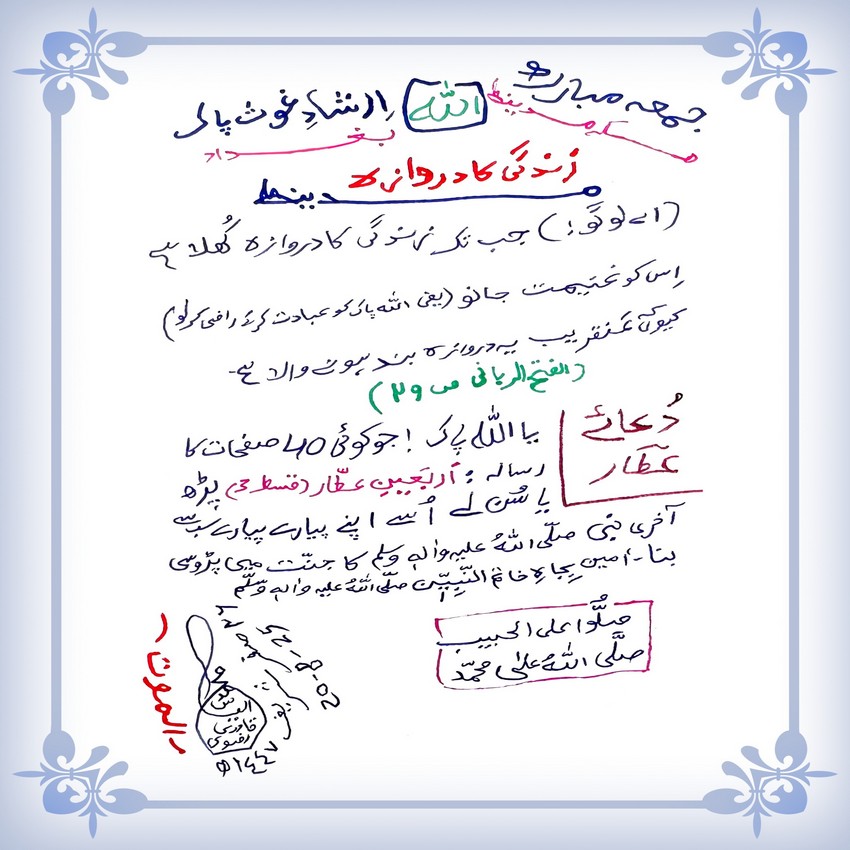 جمعہ مبارک
مکہ مدینہ
اللہ
ارشادِ غوث پاک
بغداد
زندگی کا دروازہ
مدینہ
(اے لوگو!) جب تک زندگی کا دروازہ کُھلا ہے
اِس کو غنیمت جانو (یعنی اللہ پاک کو عبادت کرکے راضی کرلو)
کیونکہ عَنقریب یہ دروازہ بند ہونے والا ہے۔
(الفتح الربانی ص ۲۹)
دُعائے
عطّار
یا اللہ پاک! جو کوئی 40 صفحات کا
رسالہ: اَربَعینِ عطّار (قسط 3) پڑھ
یا سُن لے اُسے اپنے پیارے پیارے سب سے
آخری نبی صلَّی اللہُ علیہ واٰلہٖ وسلَّم کا جنّت میں پڑوسی
بنا۔ اٰمین بِجاہِ خاتَمِ النَّبِیّٖن صلَّی اللہُ علیہ واٰلہٖ وسلَّم
صَلُّوا علی الحبیب
صلَّی اللہُ علیٰ محمَّد
الموت
قادری
رضوی
۱۴۴۷ھ